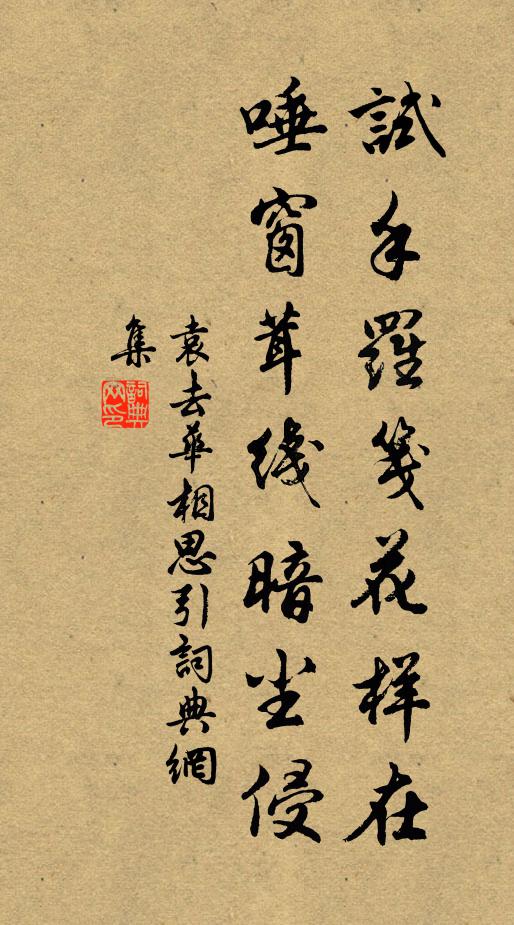 試手羅箋花样在
唾窗茸线暗尘侵
袁去華相思引詞典網
集
詞典網印